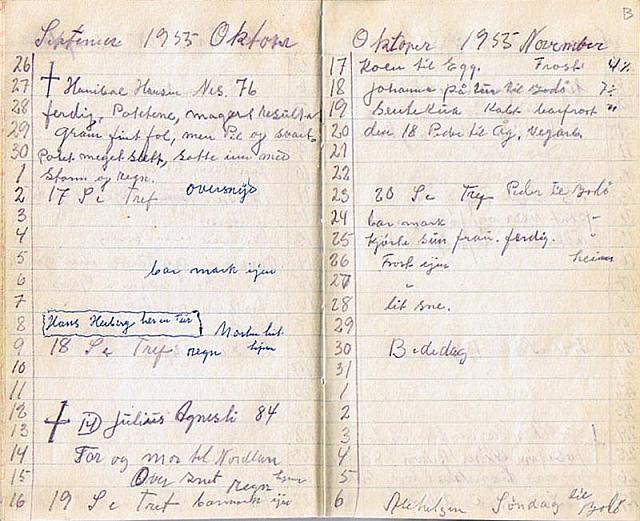 September 1955 Oktober
26
27 Hanibal Hansen Nes. 76
28 ferdig, Potetene, magert resultat
29 Gram fint fol, men Pil og svart
30 Potet meget slett, satte inn med
1 storm og regn.
2 17 Se Tref oversnyd
3
4
5
6 bar mark igen
7
8 Hans Herberg her en Tur
9 18 Se Tref regn igen
10
11
12
13 14 Julius Agnesti 84
14 Far og mor til Nordlan
15 Over snøt regn igen
16 19 Se Tref barmark igen
B
Oktober 1955 November
17 Koen til Egg. Frost 4 1/2
18 Johanna på tur til Bodø 7
19 Kalt barfrost "
20 den 18 Peder til Åg. Vegard
21
22
23 20 Se Tref Peder til Bodø
24 bar mark "
25 kjørte sun fran. ferdig.
26 Frost igen heim
27 "
28 lit sne.
29
30 Bededag
31
1
2
3
4
5
6 Søndag til Bodø